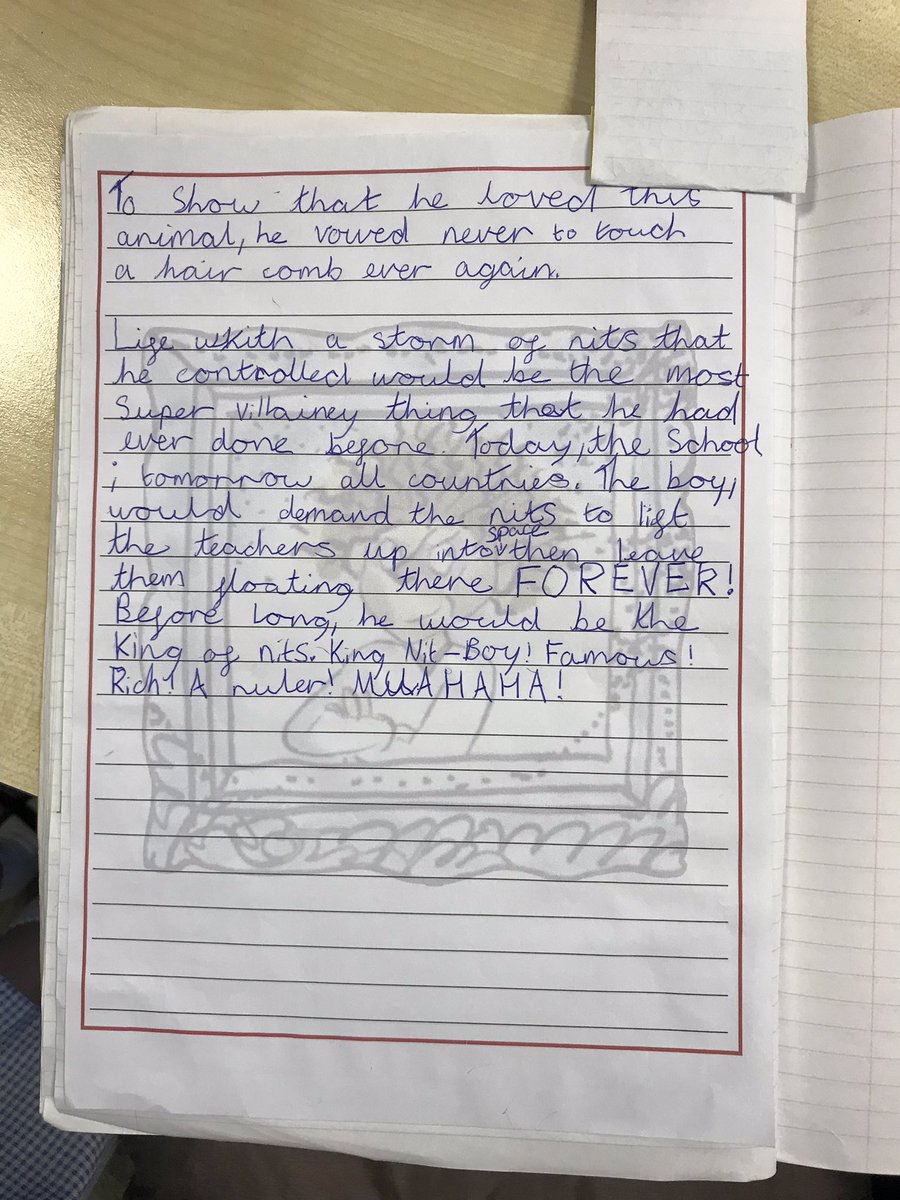 To Show that he loved this
animal, he vowed never to touch
a hair comb ever again.
Life wkith a storm of nits that
he controlled would be the most
Super villainey thing that he had
ever done before. Today, the School
; tomorrow all countries. The boy,
would demand the nits to lift
space
the teachers up into then leave
them floating there FOREVER!
Before long, he would be the
King of nits. King Nit-Boy! Famous!
Rich! A ruler! MUAHAHA!